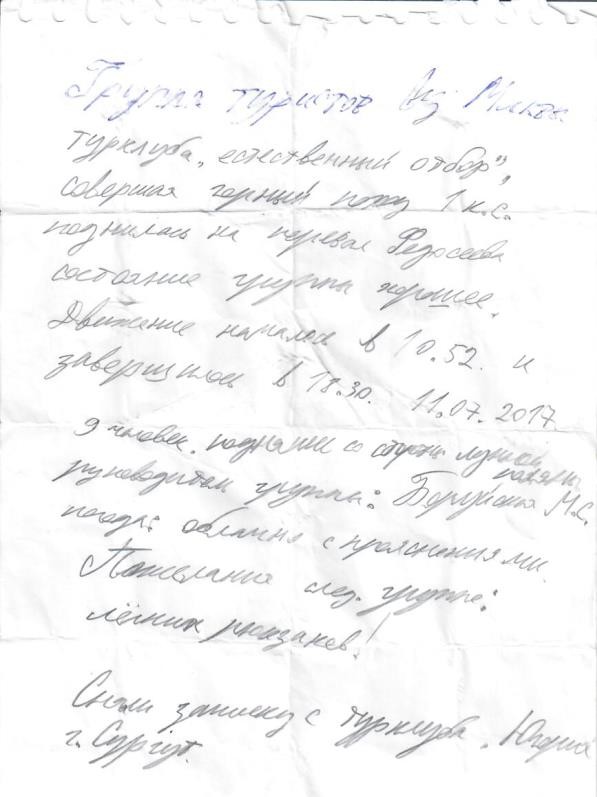 Группа туристов из Москвы
турклуба „естественный отбор”,
совершая горный поход 1 к.с.
поднялась на перевал Федосеева
состояние группы хорошее.
Движение началось в 10.52. и
завершилось в 18.30. 11.07.2017
9 человек. поднялись со стороны лунной
поляны
руководитель группы: М.С.
погода: облачно с прояснениями.
Пожелание след. группе:
лёгких рюкзаков!
Сняли записку с турклуба „
г. Сургут.